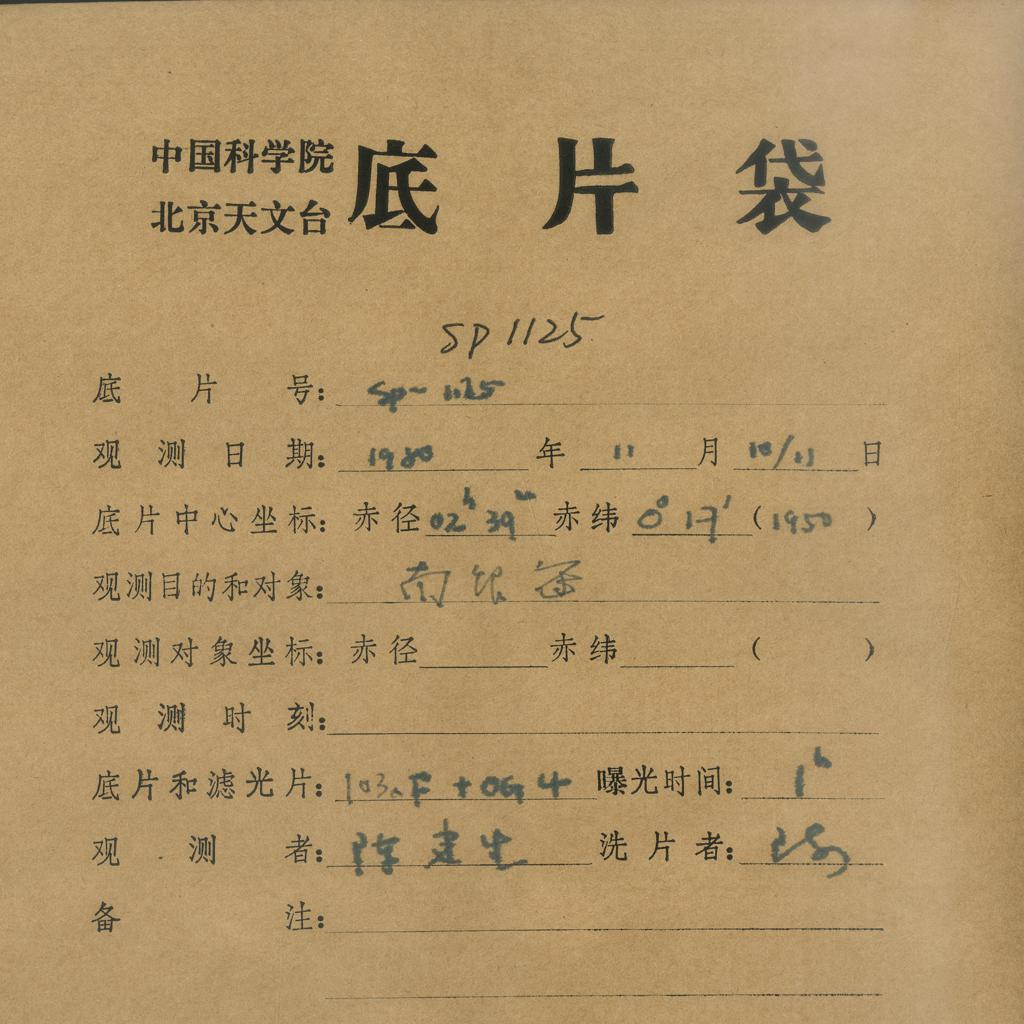 中国科学院
北京天文台 底片袋
SP1125
底片号: Sp-1125
观测日期: 1980 年 11 月 10/11 日
底片中心坐标: 赤径 02h 39m 赤纬 0° 17' (1950)
观测目的和对象: 南银冠
观测对象坐标: 赤径 赤纬 ( )
观测时刻:
底片和滤光片: 103aF + OG4 曝光时间: 1h
观测者: 陈建生 洗片者:
备注: